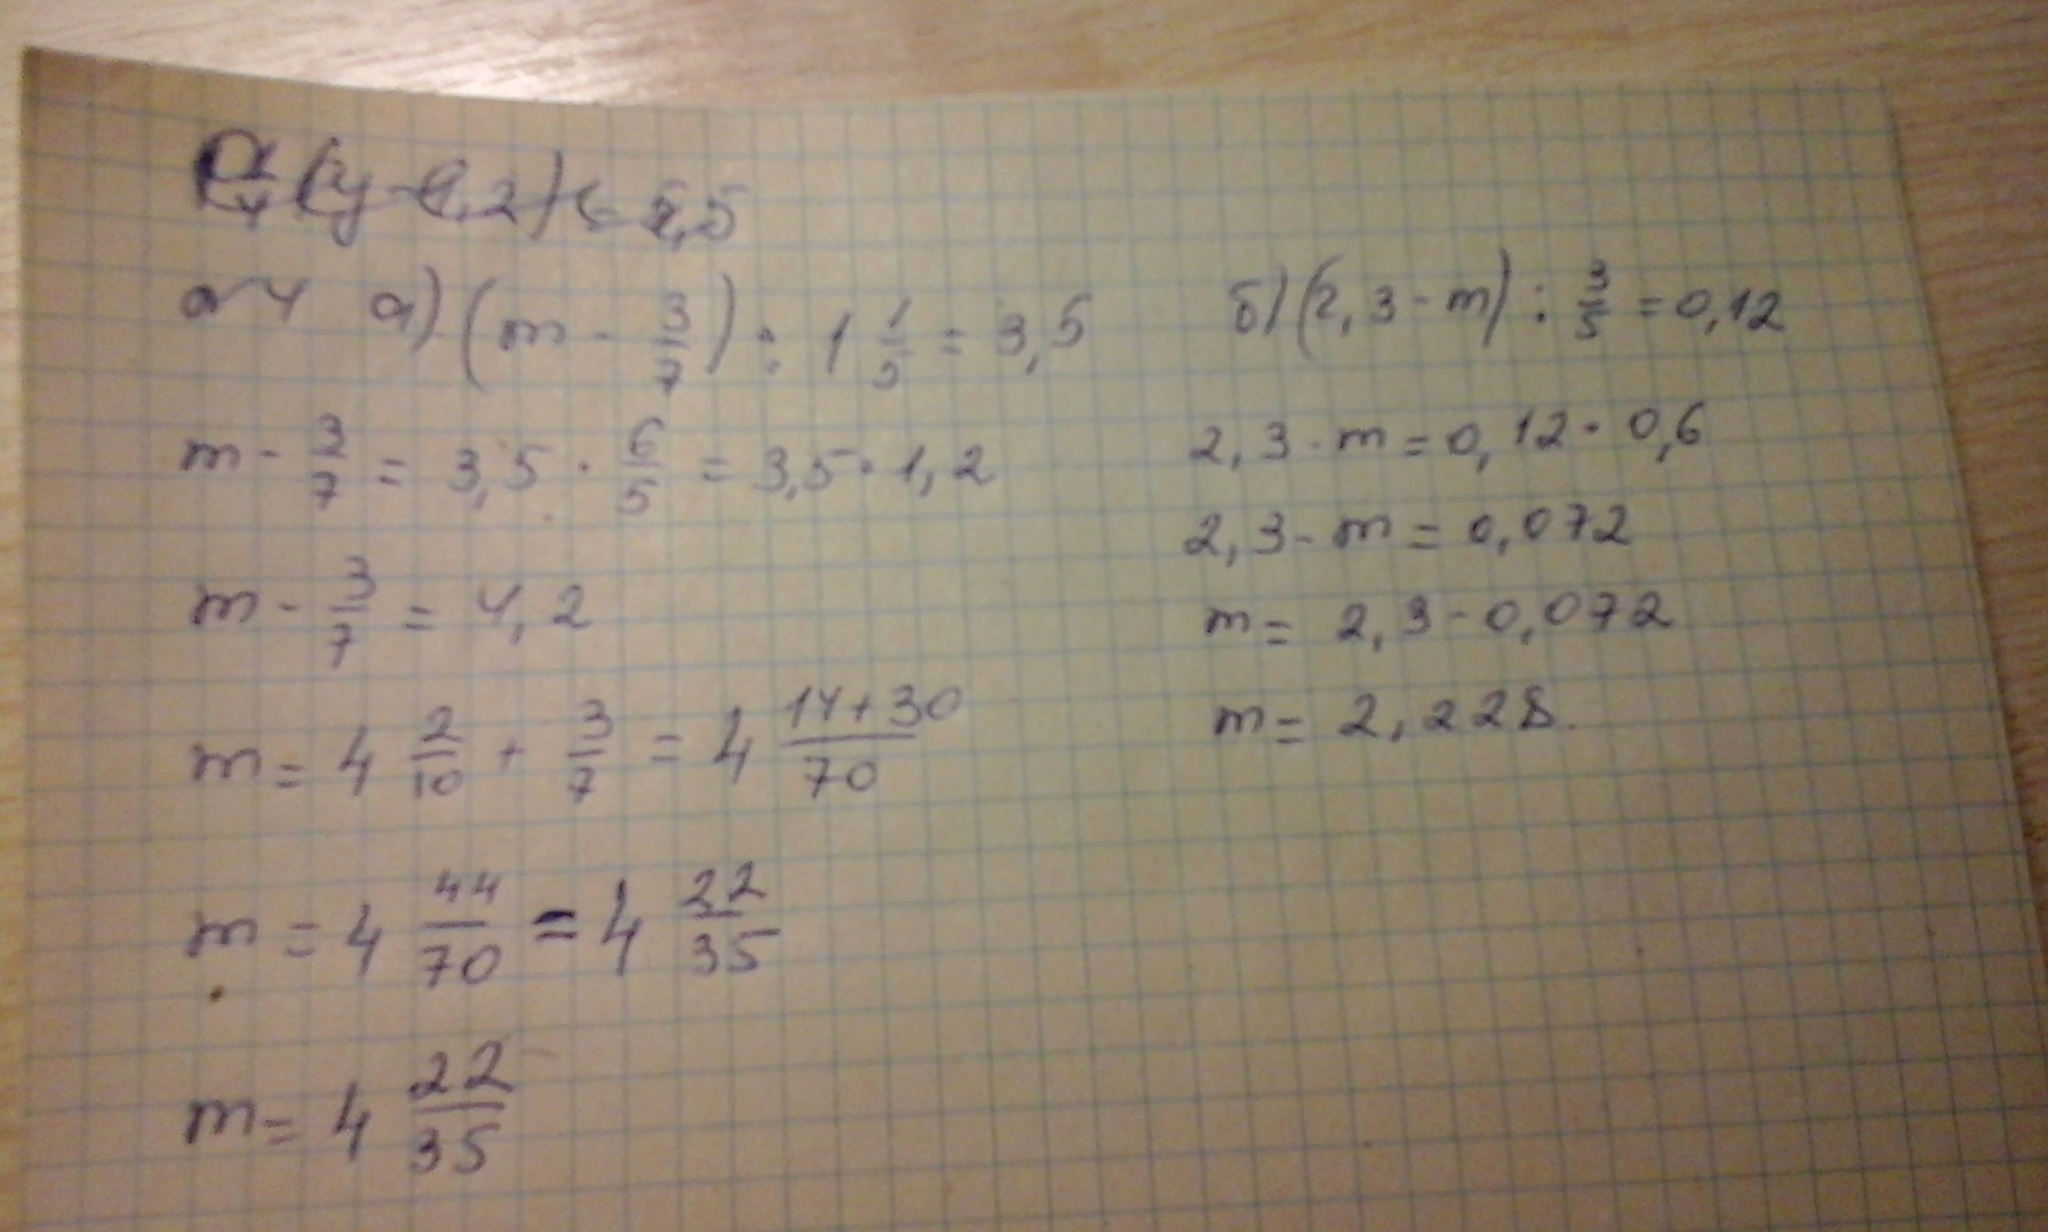 а) (m - 3/7) : 1 1/5 = 3,5
m - 3/7 = 3,5 · 6/5 = 3,5 · 1,2
m - 3/7 = 4,2
m = 4 2/10 + 3/7 = 4 (14+30)/70
m = 4 44/70 = 4 22/35
m = 4 22/35
б) (2,3 - m) : 3/5 = 0,12
2,3 - m = 0,12 · 0,6
2,3 - m = 0,072
m = 2,3 - 0,072
m = 2,228.